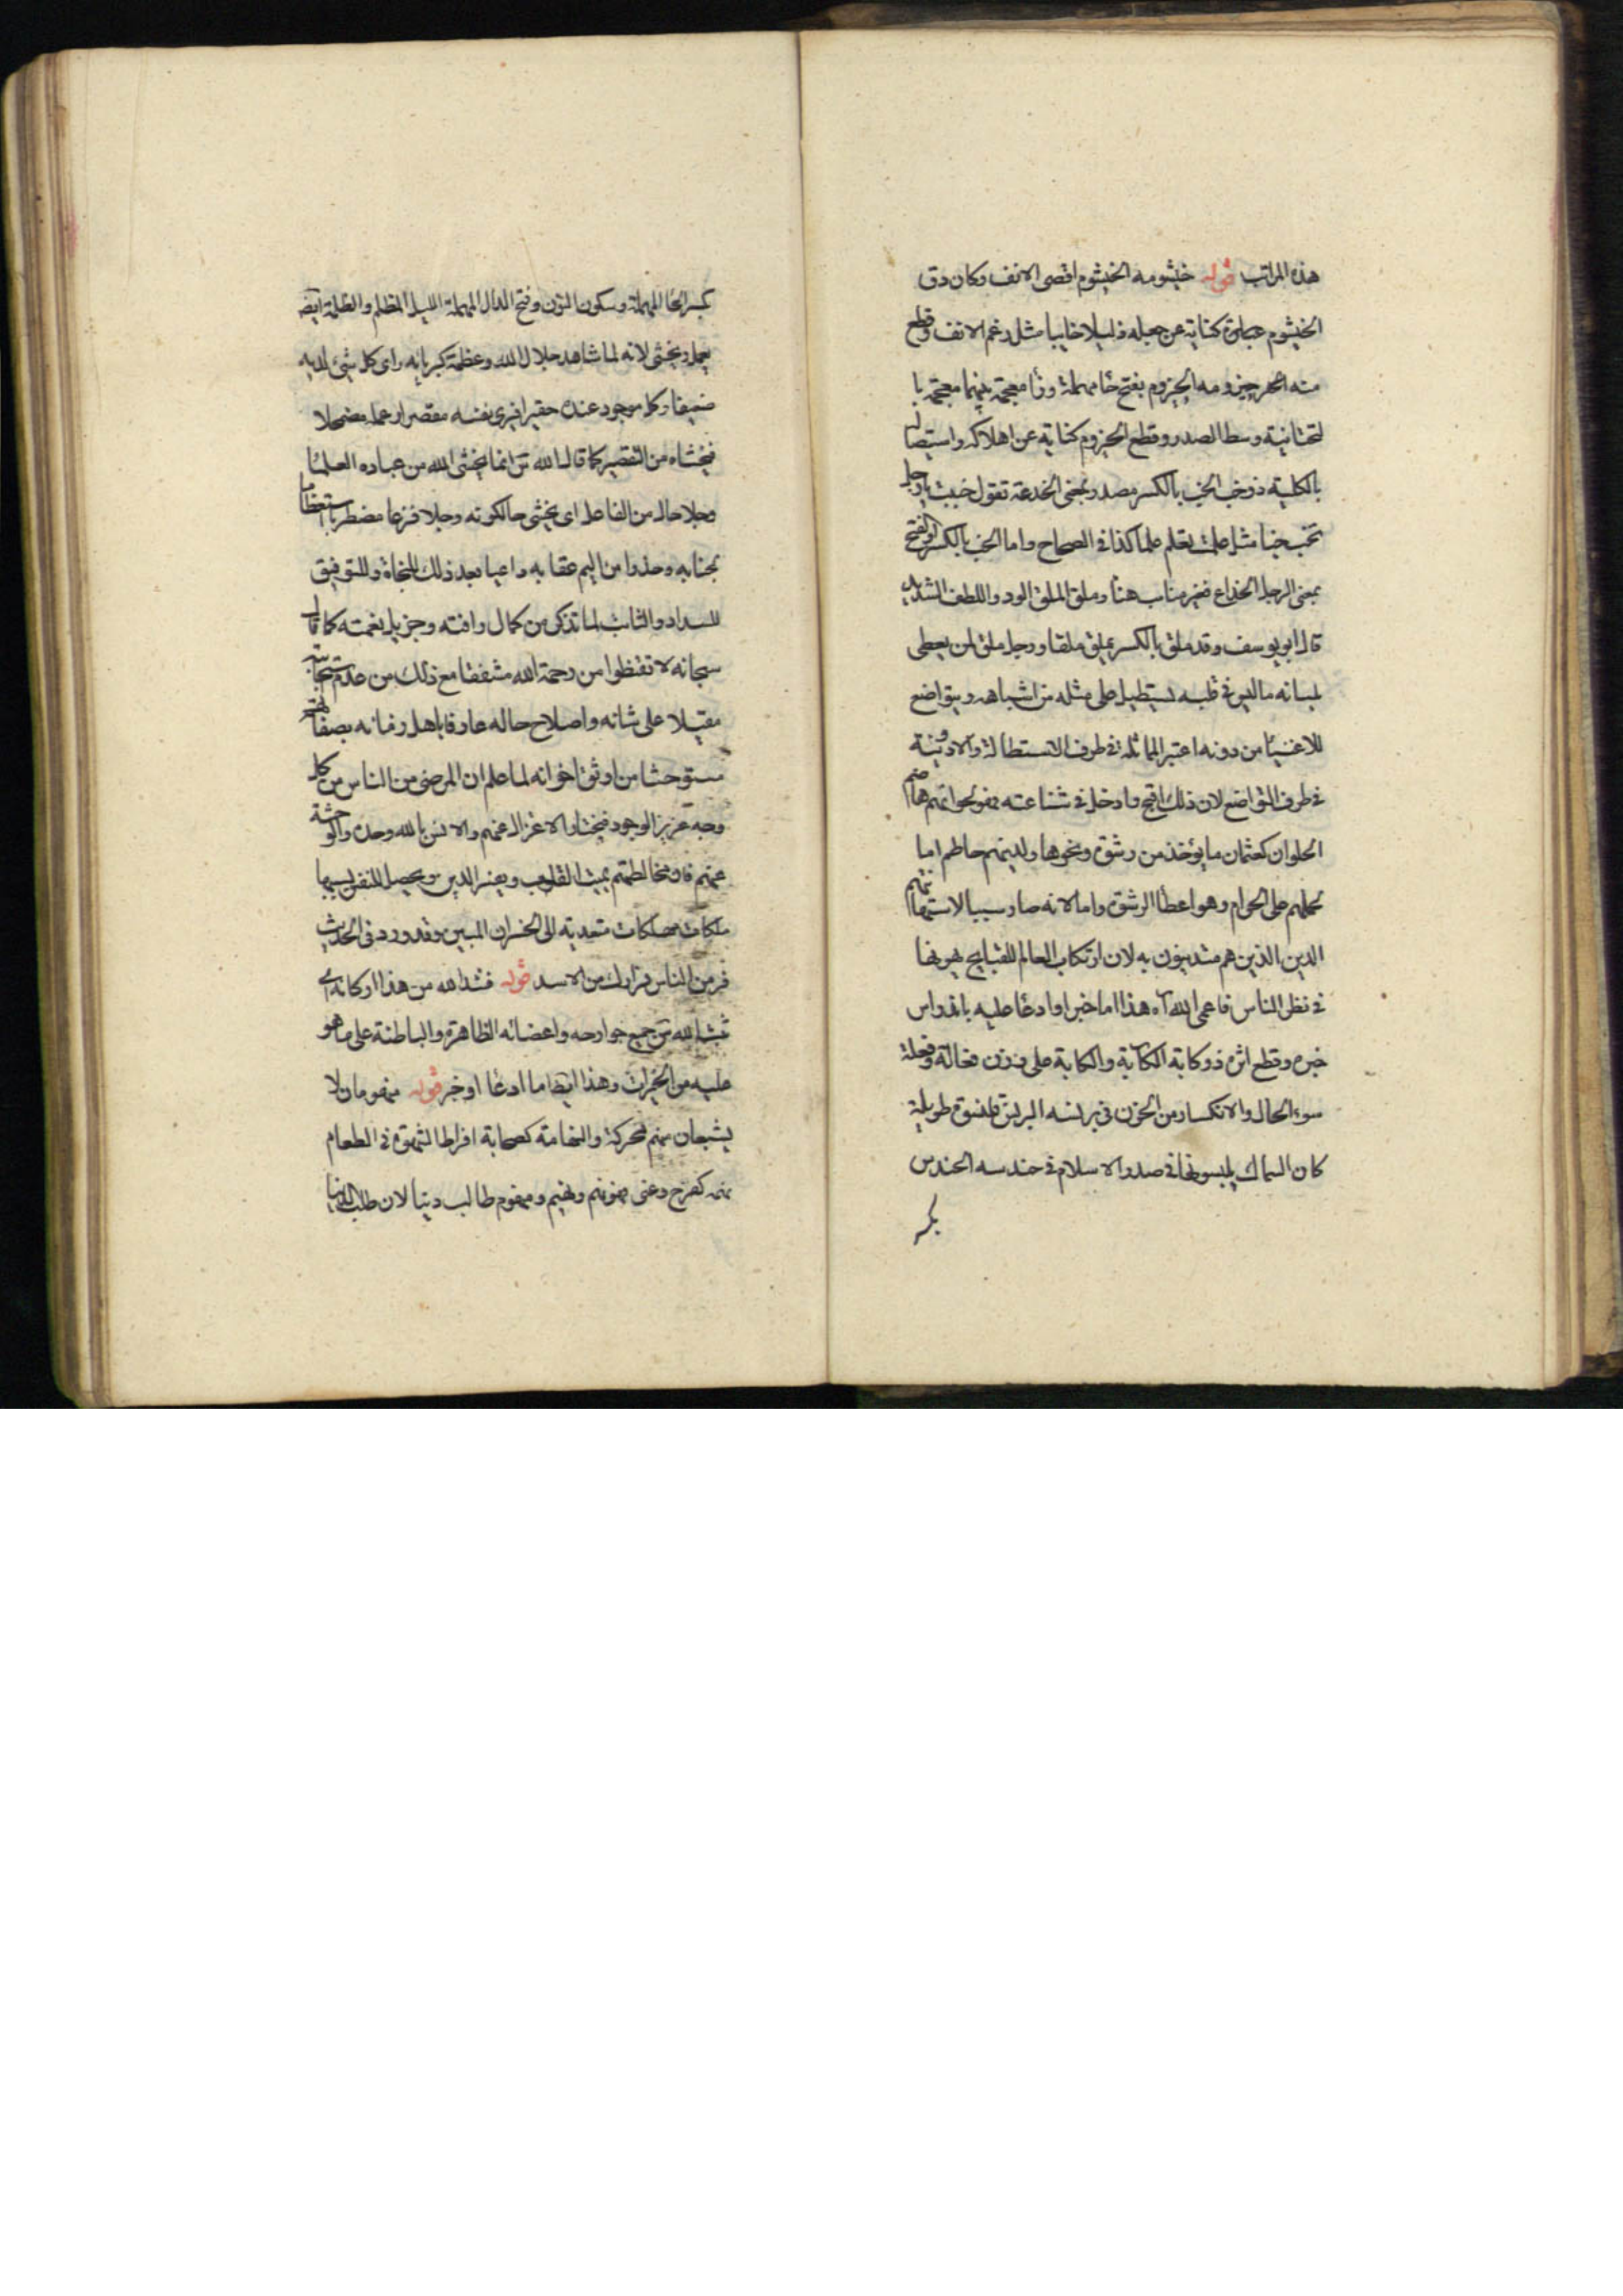 هذه المراتب قوله خيشومه الخيشوم اقصى الانف وكان دق
الخيشوم عبارة كناية عن جعله ذليلا خايبا مثل رغم الانف وقطع
منه حيزومه الحيزوم بفتح حا مهملة وزا معجمة بينهما يا
تحتانية وسط الصدر وقطع الحيزوم كناية عن اهلاكه واستيصاله
بالكلية ذو خب الخب بالكسر مصدر بمعنى الخدعة تقول خببت يا رجل
تخب خبا مثل علمت تعلم علما كذا في الصحاح واما الخب بالكسر او الفتح
بمعنى الرجل الخداع فغير مناسب هنا وملق الملق الود واللطف الشديد
قال ابو يوسف وقد ملق بالكسر يملق ملقا ورجل ملق لمن يعطى
بلسانه ما ليس في قلبه يستطيل على مثله من اشباهه ويتواضع
للاغنيا من دونه اعتبر المماثلة في طرف الاستطالة والادونية
في طرف التواضع لان ذلك اقبح وادخل في شناعته فهو لحلوائهم هاضم
الحلوان كعثمان ما يؤخذ من رشوة ونحوها ولدينهم حاطم اما
لحملهم على الحرام وهو اعطا الرشوة واما لانه صار سببا لاستهانتهم
الدين الذين هم متدينون به لان ارتكاب العالم للقبايح يهونها
في نظر الناس فاعمى الله اه هذا اما خبر او ادعا عليه باندراس
خبره وقطع اثره ذو كابة الكابة والكابة على وزن فعالة وفعلة
سوء الحال والانكسار من الحزن في برنسه البرنس قلنسوة طويلة
كان النساك يلبسونها في صدر الاسلام في حندسه الحندس
بكسر
بكسر الحا المهملة وسكون النون وفتح الدال المهملة الليل المظلم والظلمة ايض
يعمل ويخشى لانه لما شاهد جلال الله وعظمة كبريائه راى كل شئ لديه
ضعيفا وكل موجود عنده حقيرا فيرى نفسه مقصرا وعمله مضمحلا
فيخشاه من التقصير كما قال الله تع انما يخشى الله من عباده العلما
وجلا حال من الفاعل اى يخشى حالكونه وجلا فزعا مضطربا استعظاما
لجنابه وحذرا من اليم عقابه داعيا بعد ذلك للنجاة وللتوفيق
للسداد والثبات لما تذكر من كمال رافته وجزيل نعمته كما قال
سبحانه لا تقنطوا من رحمة الله مشفقا مع ذلك من عدم استجابته
مقبلا على شانه واصلاح حاله عارفا باهل زمانه بصفاتهم
مستوحشا من اوثق اخوانه لما علم ان المرضى من الناس من كل
وجه عزيز الوجود فيختار الاعتزال عنهم والانس بالله وحده والوحشة
عنهم فان مخالطتهم يميت القلوب ويفسد الدين ويحصل للنفس بسببها
ملكات مهلكات متعدية الى الخسران المبين وقد ورد في الحديث
فر من الناس فرارك من الاسد قوله فشد الله من هذا اركانه اى
ثبت الله تع جميع جوارحه واعضائه الظاهرة والباطنة على ما هو
عليه من الخيرات وهذا ايضا اما ادعا او خبر قوله منهومان لا
يشبعان نهم محركة والنهامة كصحابة افراط الشهوة في الطعام
نهم كفرح وعنى فهو نهم ونهيم ومنهوم طالب دنيا لان طلب الدنيا